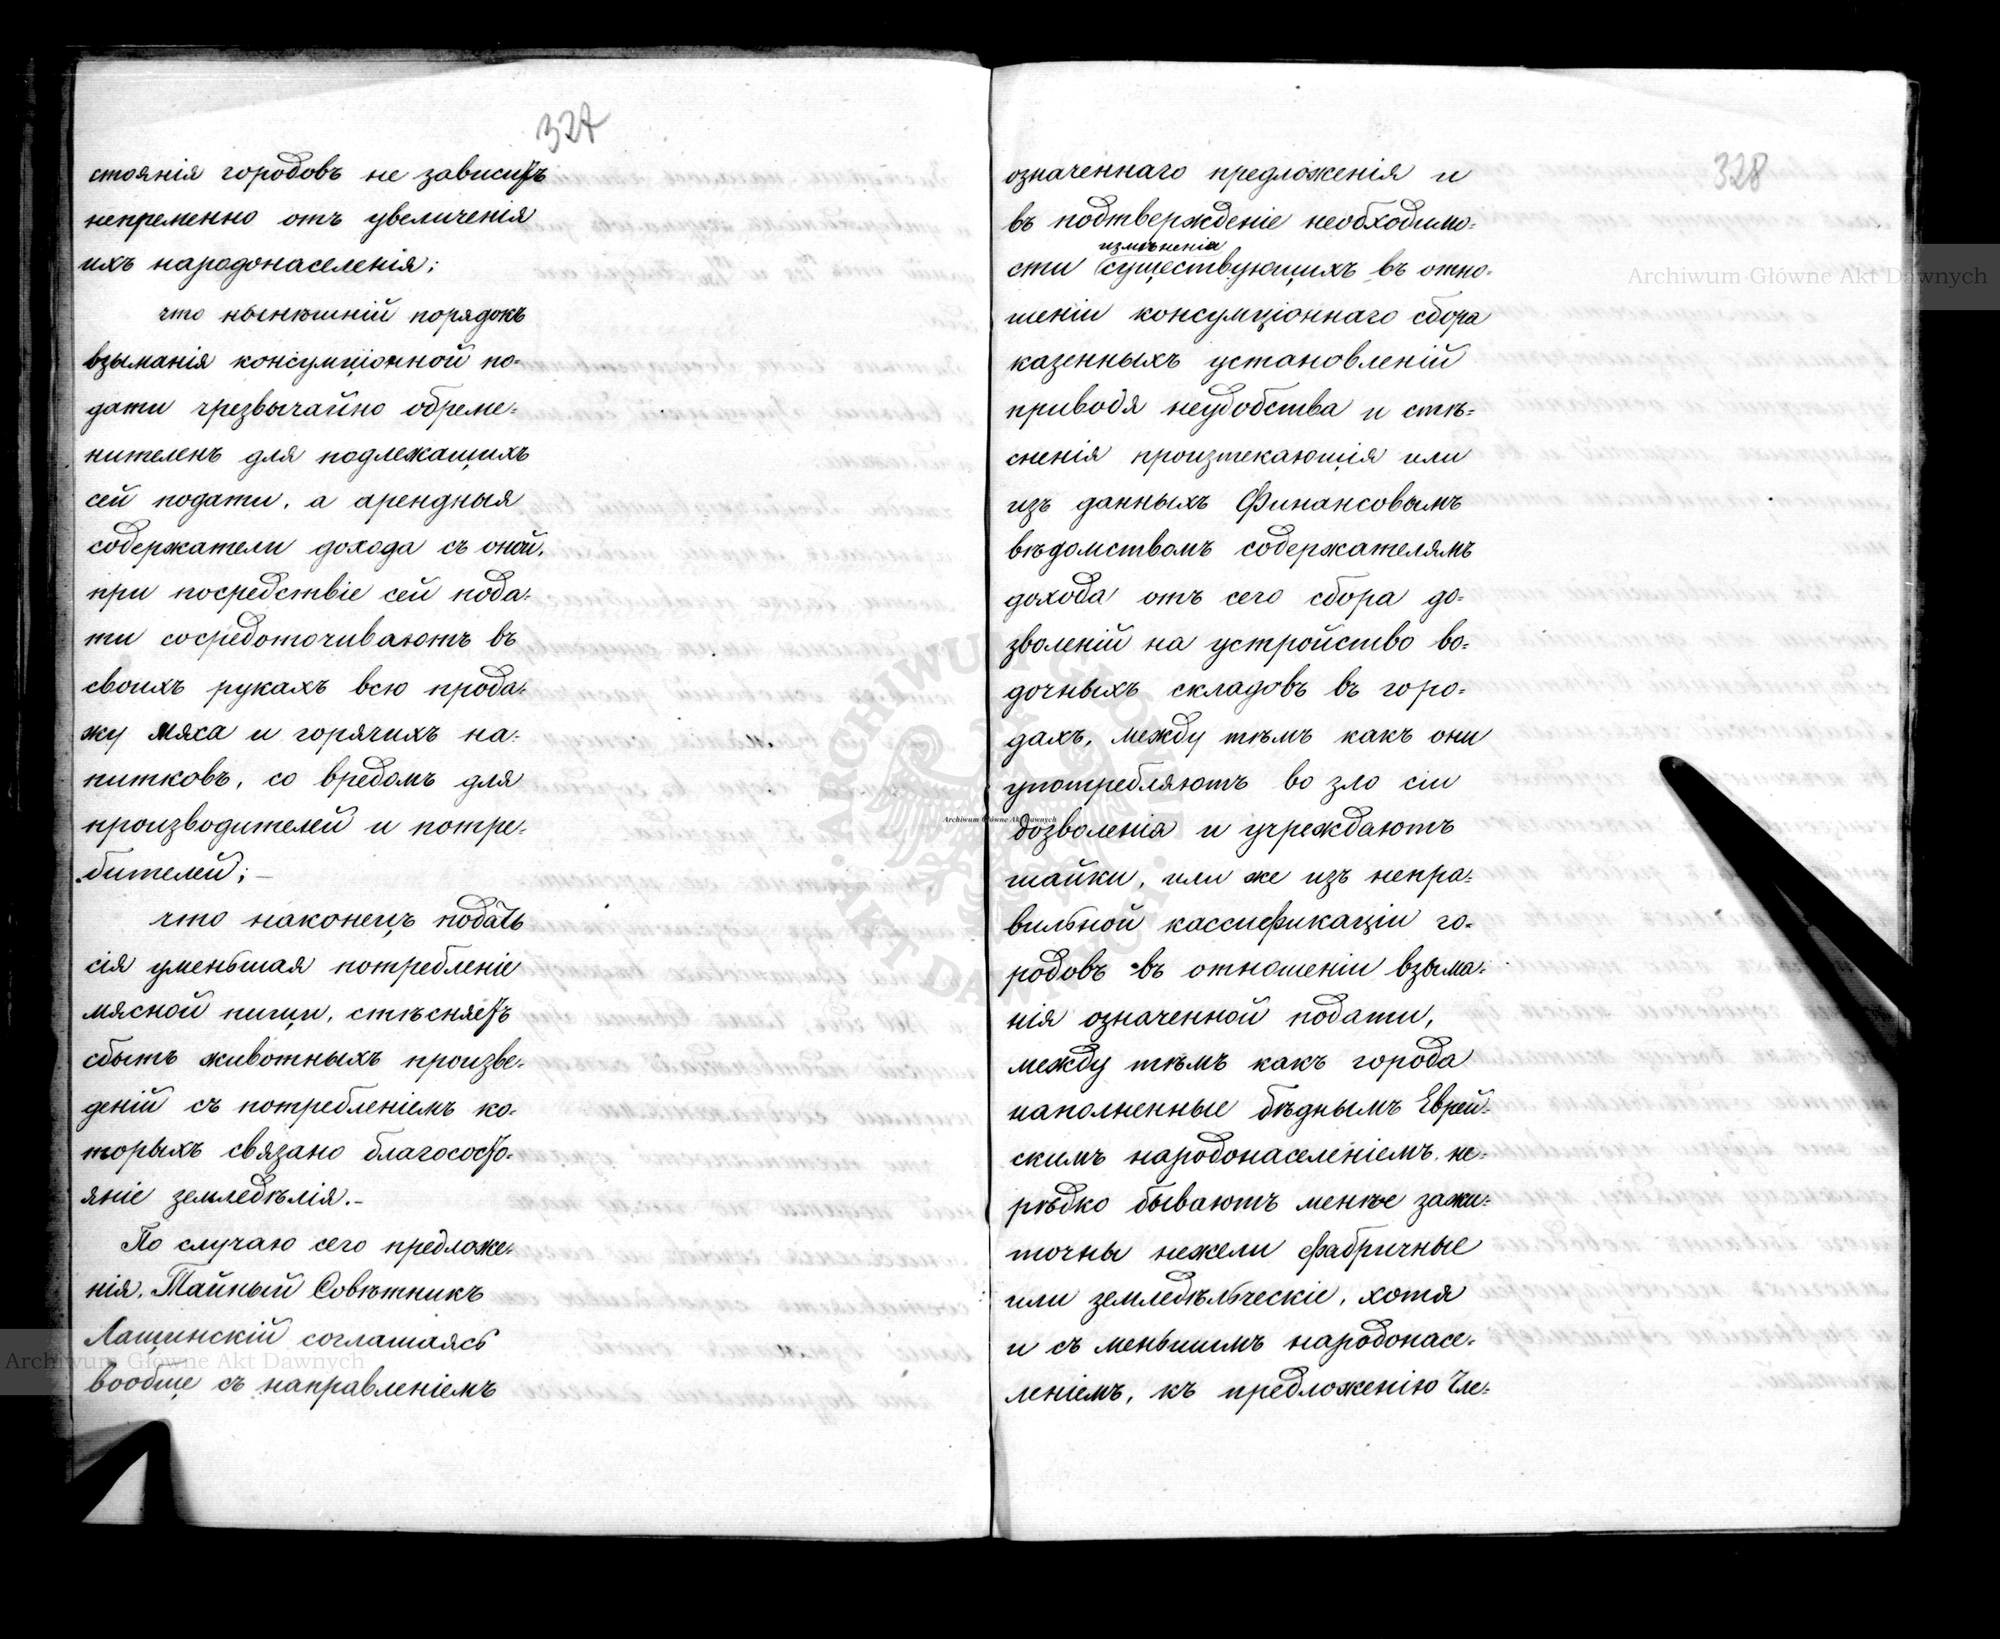 327
стоянія городовъ не зависитъ
непременно отъ увеличенія
ихъ народонаселенія;
что нынѣшній порядокъ
взыманія консумціонной по-
дати чрезвычайно обреме-
нителенъ для подлежащихъ
сей подати, а арендныя
содержатели дохода съ оной,
при посредствіе сей пода-
ти сосредоточиваютъ въ
своихъ рукахъ всю прода-
жу мяса и горячихъ на-
питковъ, со вредомъ для
производителей и потре-
бителей;—
что наконецъ подать
сія уменьшая потребленіе
мясной пищи, стѣсняетъ
сбытъ животныхъ произве-
деній съ потребленіемъ ко-
торыхъ связано благососто-
яніе земледѣлія.—
По случаю сего предложе-
нія, Тайный Совѣтникъ
Лащинскій соглашаясь
вообще съ направленіемъ
328
означеннаго предложенія и
въ подтвержденіе необходимо-
измѣненія
сти существующихъ въ отно-
шеніи консумціоннаго сбора
казенныхъ установленій
приводя неудобства и стѣ-
сненія проистекающія или
изъ данныхъ Финансовымъ
вѣдомствомъ содержателямъ
дохода отъ сего сбора до-
зволеній на устройство во-
дочныхъ складовъ въ горо-
дахъ, между тѣмъ какъ они
употребляютъ во зло сіи
дозволенія и учреждаютъ
шайки, или же изъ непра-
вильной кассификаціи го-
родовъ въ отношеніи взыма-
нія означенной подати,
между тѣмъ какъ города
наполненные бѣднымъ Еврей-
скимъ народонаселеніемъ не-
рѣдко бываютъ менѣе зажи-
точны нежели фабричные
или земледѣльческіе, хотя
и съ меньшимъ народонасе-
леніемъ, къ предложенію Чле-
Archiwum Główne Akt Dawnych
Archiwum Główne Akt Dawnych
Archiwum Główne Akt Dawnych
ARCHIWUM GŁÓWNE AKT DAWNYCH